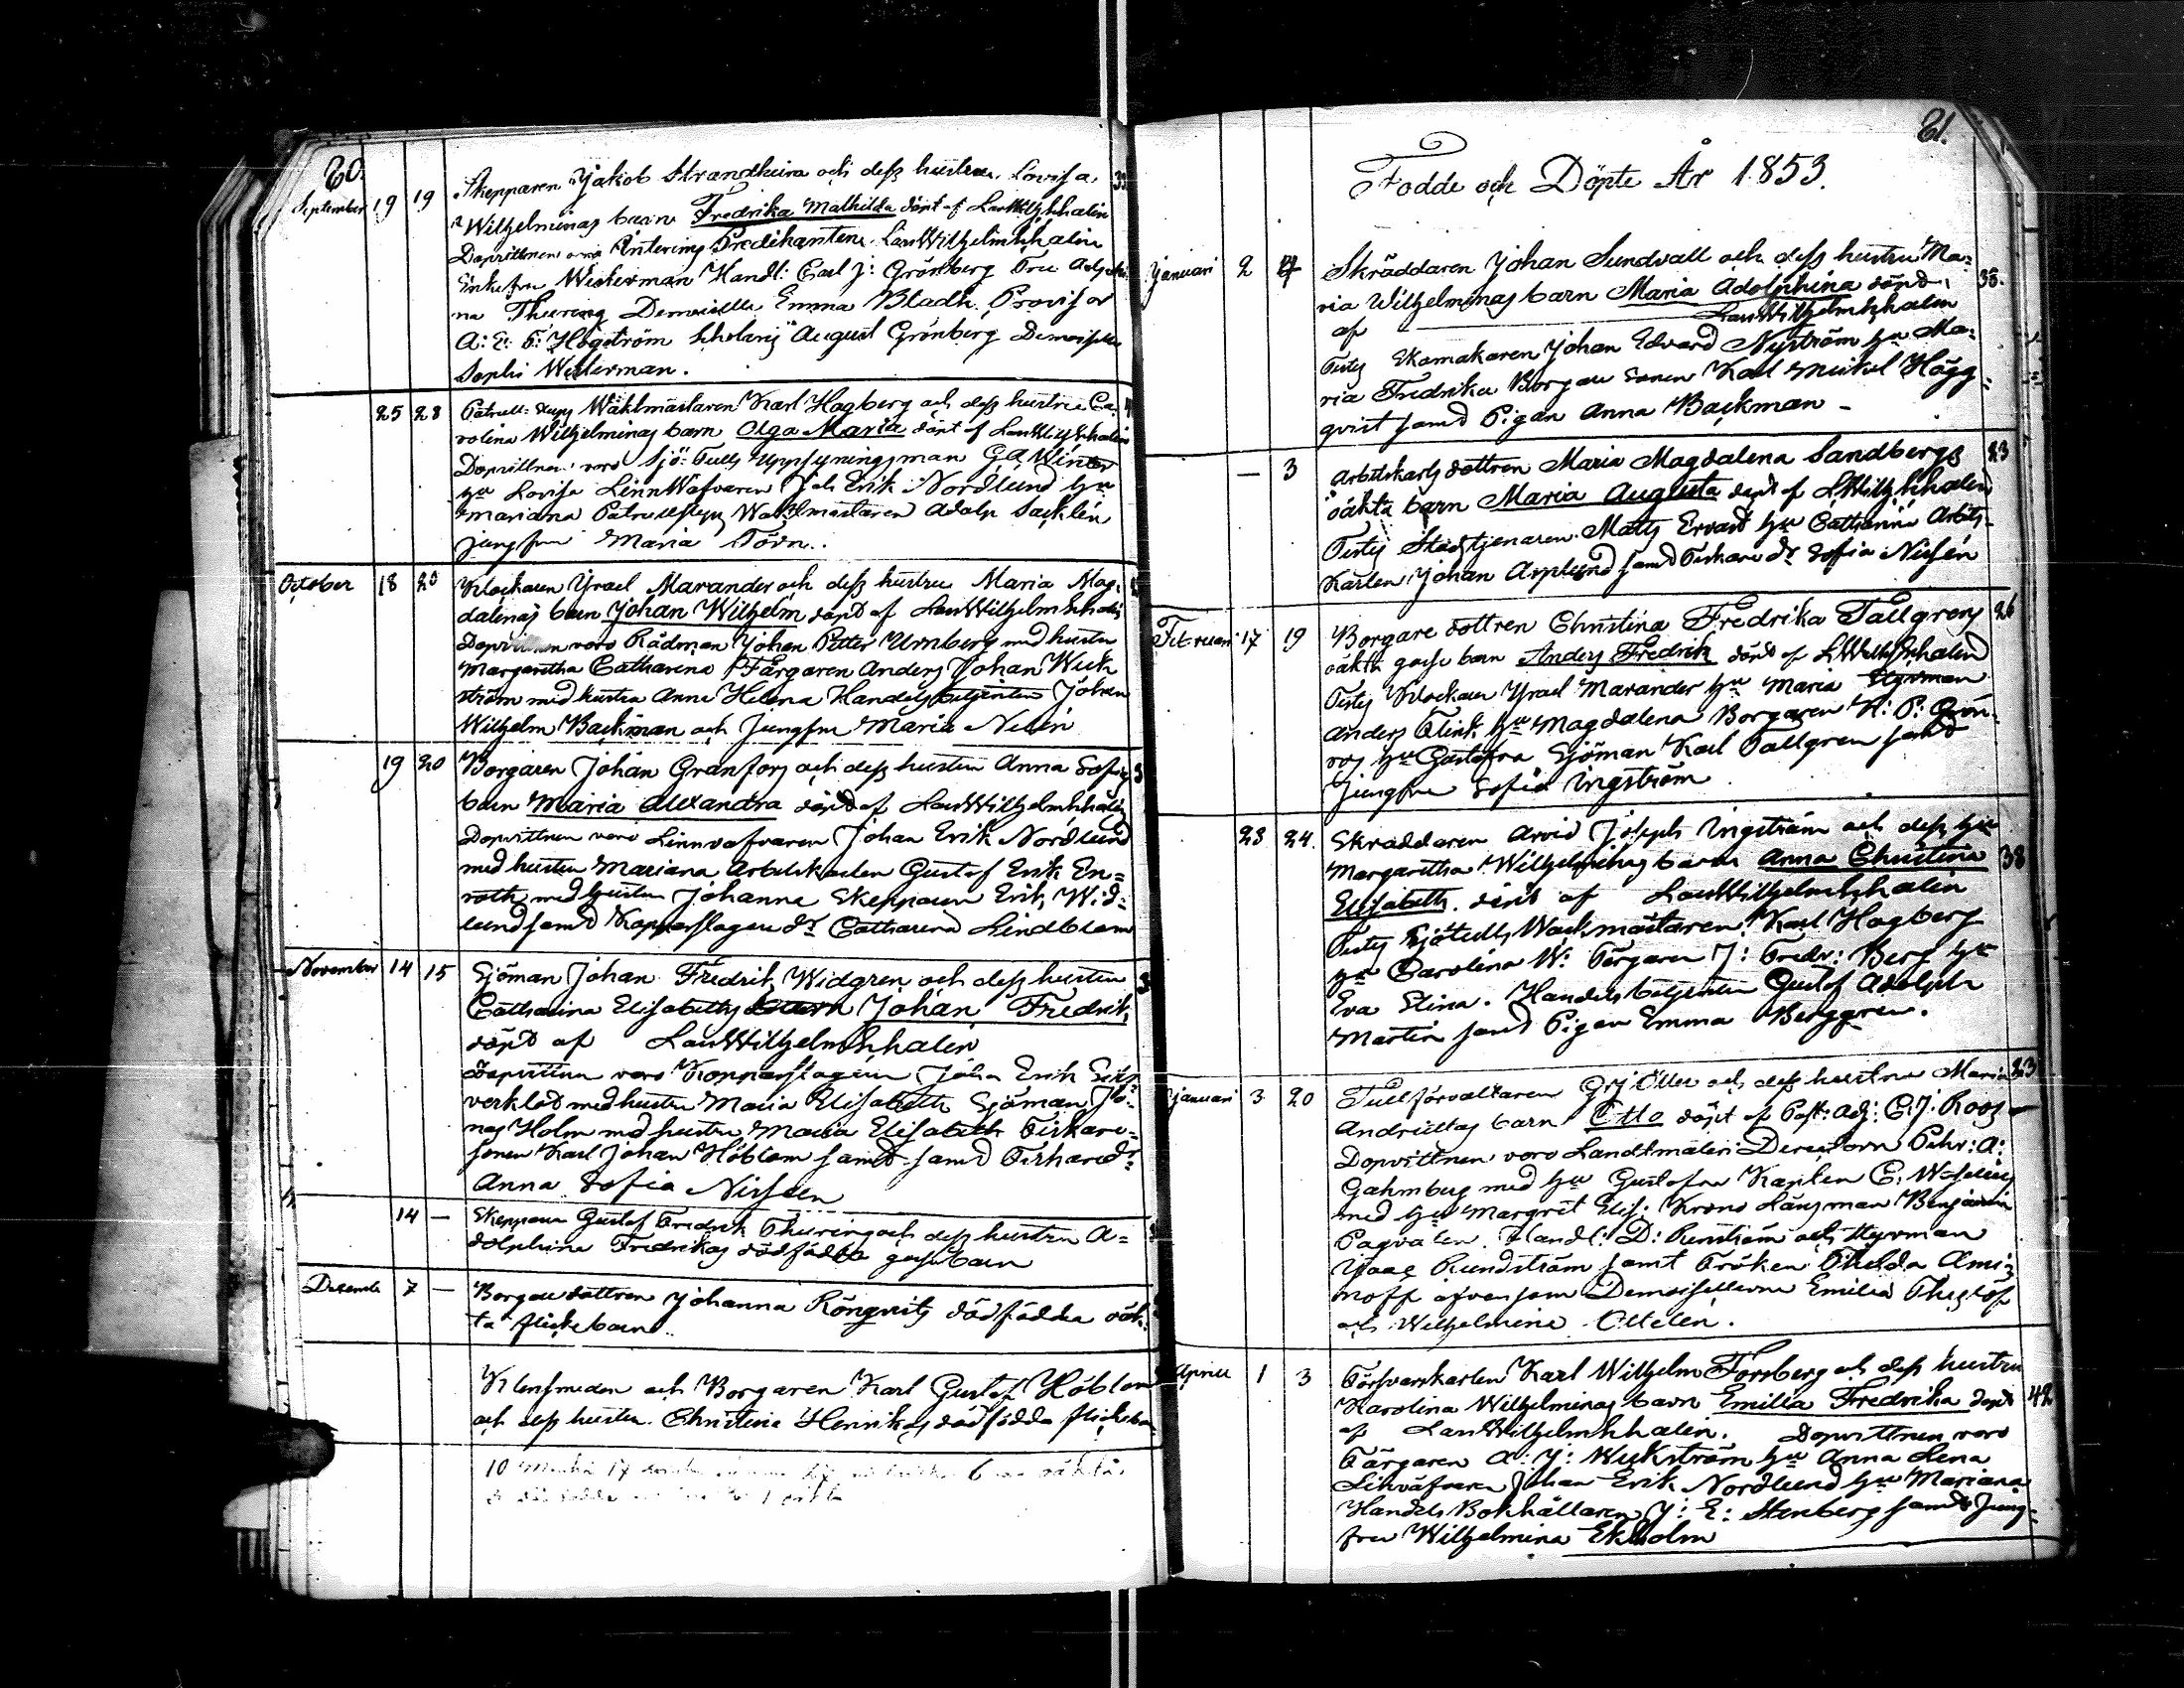 80.
September 19 19 Skepparen Jakob Strandheim och dess hustru Lovisa 33
Wilhelminas barn Fredrika Mathilda döpt af Lars Wilhelm Schalin
Dopvittnen Predikanten Lars Wilhelm Schalin
Enkefru Westerman Handl: Carl J: Grönberg Fru Adolphi
na Thuring Demoiselle Emma Bladh Provisor
A: E: F: Högström Scholaris August Grönberg Demoiselle
Sophi Westerman.
25 28 Patrull-Uppsy Waktmästaren Karl Hagberg och dess hustru Ca-
rolina Wilhelminas barn Olga Maria döpt af Lars Wilh Schalin
Dopvittnen voro Sjö-Tulls Uppsyningsman G A Winter
hu Lovisa Linnwäfvaren Joh Erik Nordlund hu
Mariana Patrulluppsy Waktmästaren Adolp Sacklén
Jungfru Maria Törn.
October 18 20 Klockaren Israel Marander och dess hustru Maria Mag-
dalenas barn Johan Wilhelm döpt af Lars Wilhelm Schalin
Dopvittnen voro Rådman Johan Petter Urnberg med hustru
Margaretha Catharena Färgaren Anders Johan Wick
ström med hustru Anna Helena Handelsbetjenten Johan
Wilhelm Backman och Jungfru Maria Nisén
19 20 Borgaren Johan Granfors och dess hustru Anna Sofias
barn Maria Alexandra döpt af Lars Wilhelm Schalin
Dopvittnen voro Linnvafvaren Johan Erik Nordlund
med hustru Mariana Arbetskarlen Gustaf Erik En=
roth med hustru Johanna Skepparen Erik Wid=
lund samt Kopparslagare dr Catharina Lindblom
November 14 15 Sjöman Johan Fredrik Widgren och dess hustru
Catharina Elisabeths barn Johan Fredrik,
döpt af Lars Wilhelm Schalin
Dopvittnen voro Kopparslagaren Johan Erik
med hustru Maria Elisabeth Sjöman Jo-
nas Holm med hustru Maria Elisabeth Fiskare-
sonen Karl Johan Höblom samt samt Fiskaredr
Anna Sofia Nissén
14 — Skepparen Gustaf Fredrik Thuring och dess hustru A=
dolphina Fredrikas dödfödda gossebarn
December 7 — Borgaredottren Johanna Rönqvists dödfödda oäk-
ta flickebarn.
Klensmeden och Borgaren Karl Gustaf Höblom
och dess hustru Christina Henrikas dödfödda flickeba
81.
Födde och Döpte År 1853.
Januari 2 4 Skräddaren Johan Sundvall och dess hustru Ma= 38.
ria Wilhelminas barn Maria Adolphina döpt
af Lars Wilhelm Schalin
Testes Skomakaren Johan Edvard Nyström hu Ma=
ria Fredrika Borgare sonen Karl Mickel Högg=
qvist samt Pigan Anna Backman -
— 3 Arbetskarls dottren Maria Magdalena Sandbergs 23
oäkta barn Maria Augusta döpt af L Wilh Schalin
Testes Stadstjenaren Matts Ervast hu Catharina Arbets-
karlen Johan Asplund samt Fiskare dr Sofia Nissén
Februari 17 19 Borgare dottren Christina Fredrika Tallgrens 26
oäkta gosse barn Anders Fredrik döpt af L Wilh Schalin
Testes Klockaren Israel Marander hu Maria Styrman
Anders Flink hu Magdalena Borgaren K: P: Grön-
ros hu Gustafva Sjöman Karl Tallgren samt
Jungfru Sofia Ingström
23 24. Skräddaren Arvid Joseph Ingström och dess hu
Margaretha Wilhelminas barn Anna Christina 38
Elisabeth. döpt af Lars Wilhelm Schalin
Testes Sjötulls Wachmästaren Karl Hagberg
hu Carolina W: Färgaren J: Fredr: Berg hu
Eva Stina. Handels betjenten Gustaf Adolph
Martin samt Pigan Emma Berggren.
Januari 3 20 Tullförvaltaren och dess hustru Maria 23
Andriettas barn Otto döpt af Past: Adj: C: J: Roos -
Dopvittnen voro Landtmäteri Direktorn Pehr: A:
Gahmberg med hu Gustafva Kapten C: Waselius
med hu Margret Elis: Krono Länsman Benjamin
Pagvalen. Handl: D: Runström och Styrman
Isaac Rundström samt Fröken Thilda Ami=
noff äfvensom Demoisellerna Emilia Theslöf
och Wilhelmina Ottelen.
April 1 3 Försvarskarlen Karl Wilhelm Forsberg och dess hustru
Karolina Wilhelminas barn Emilia Fredrika döpt 42
af Lars Wilhelm Schalin. Dopvittnen voro
Färgaren A: J: Wickström hu Anna Lena
Linväfvaren Johan Erik Nordlund hu Mariana
Handels Bokhållaren J: E: Stenberg samt Jung=
fru Wilhelmina Ekholm